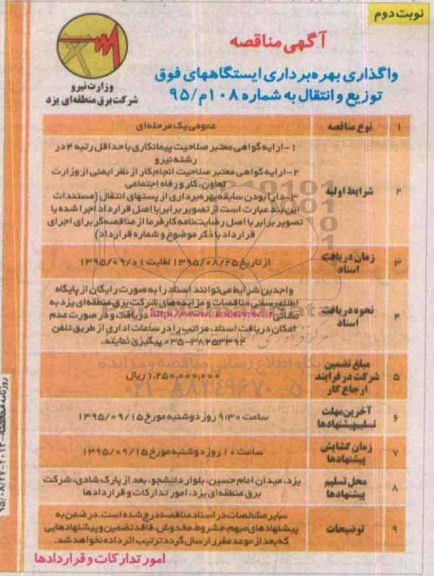 نوبت دوم
آگهی مناقصه
وزارت نیرو
شرکت برق منطقه‌ای یزد
واگذاری بهره‌برداری ایستگاههای فوق
توزیع و انتقال به شماره ۱۰۸م/۹۵
۱ نوع مناقصه عمومی یک مرحله‌ای
۲ شرایط اولیه
۱-ارایه گواهی معتبر صلاحیت پیمانکاری با حداقل رتبه ۴ در
رشته نیرو
۲-ارایه گواهی معتبر صلاحیت انجام کار از نظر ایمنی از وزارت
تعاون، کار و رفاه اجتماعی
۳-دارا بودن سابقه بهره‌برداری از پستهای انتقال (مستندات
این بند عبارت است از تصویر برابر با اصل قرارداد اجرا شده یا
تصویر برابر با اصل رضایت‌نامه کارفرما از مناقصه‌گر برای اجرای
قرارداد با ذکر موضوع و شماره قرارداد)
۳ زمان دریافت اسناد از تاریخ ۱۳۹۵/۰۸/۲۵ لغایت ۱۳۹۵/۰۹/۰۱
۴ نحوه دریافت اسناد
واجدین شرایط می‌توانند اسناد را به صورت رایگان از پایگاه
اطلاع‌رسانی مناقصات و مزایده‌های شرکت برق منطقه‌ای یزد به
نشانی دریافت و در صورت عدم
امکان دریافت اسناد، مراتب را در ساعات اداری از طریق تلفن
۰۳۵-۳۸۲۵۳۳۹۲ پیگیری نمایند.
۵ مبلغ تضمین شرکت در فرایند ارجاع کار ۱,۲۵۰,۰۰۰,۰۰۰ ریال
۶ آخرین مهلت تسلیم پیشنهادها ساعت ۹:۳۰ روز دوشنبه مورخ ۱۳۹۵/۰۹/۱۵
۷ زمان گشایش پیشنهادها ساعت ۱۰ روز دوشنبه مورخ ۱۳۹۵/۰۹/۱۵
۸ محل تسلیم پیشنهادها
یزد، میدان امام حسین، بلوار دانشجو، بعد از پارک شادی، شرکت
برق منطقه‌ای یزد، امور تدارکات و قراردادها
۹ توضیحات
سایر مشخصات در اسناد مناقصه درج شده است. در ضمن به
پیشنهادهای مبهم، مشروط، مخدوش، فاقد تضمین و پیشنهادهایی
که بعد از موعد مقرر ارسال گردد ترتیب اثر داده نخواهد شد.
امور تدارکات و قراردادها
پایگاه اطلاع رسانی مناقصه و مزایده
۰۲۱-۸۸۳۴۹۶۷۰-۵